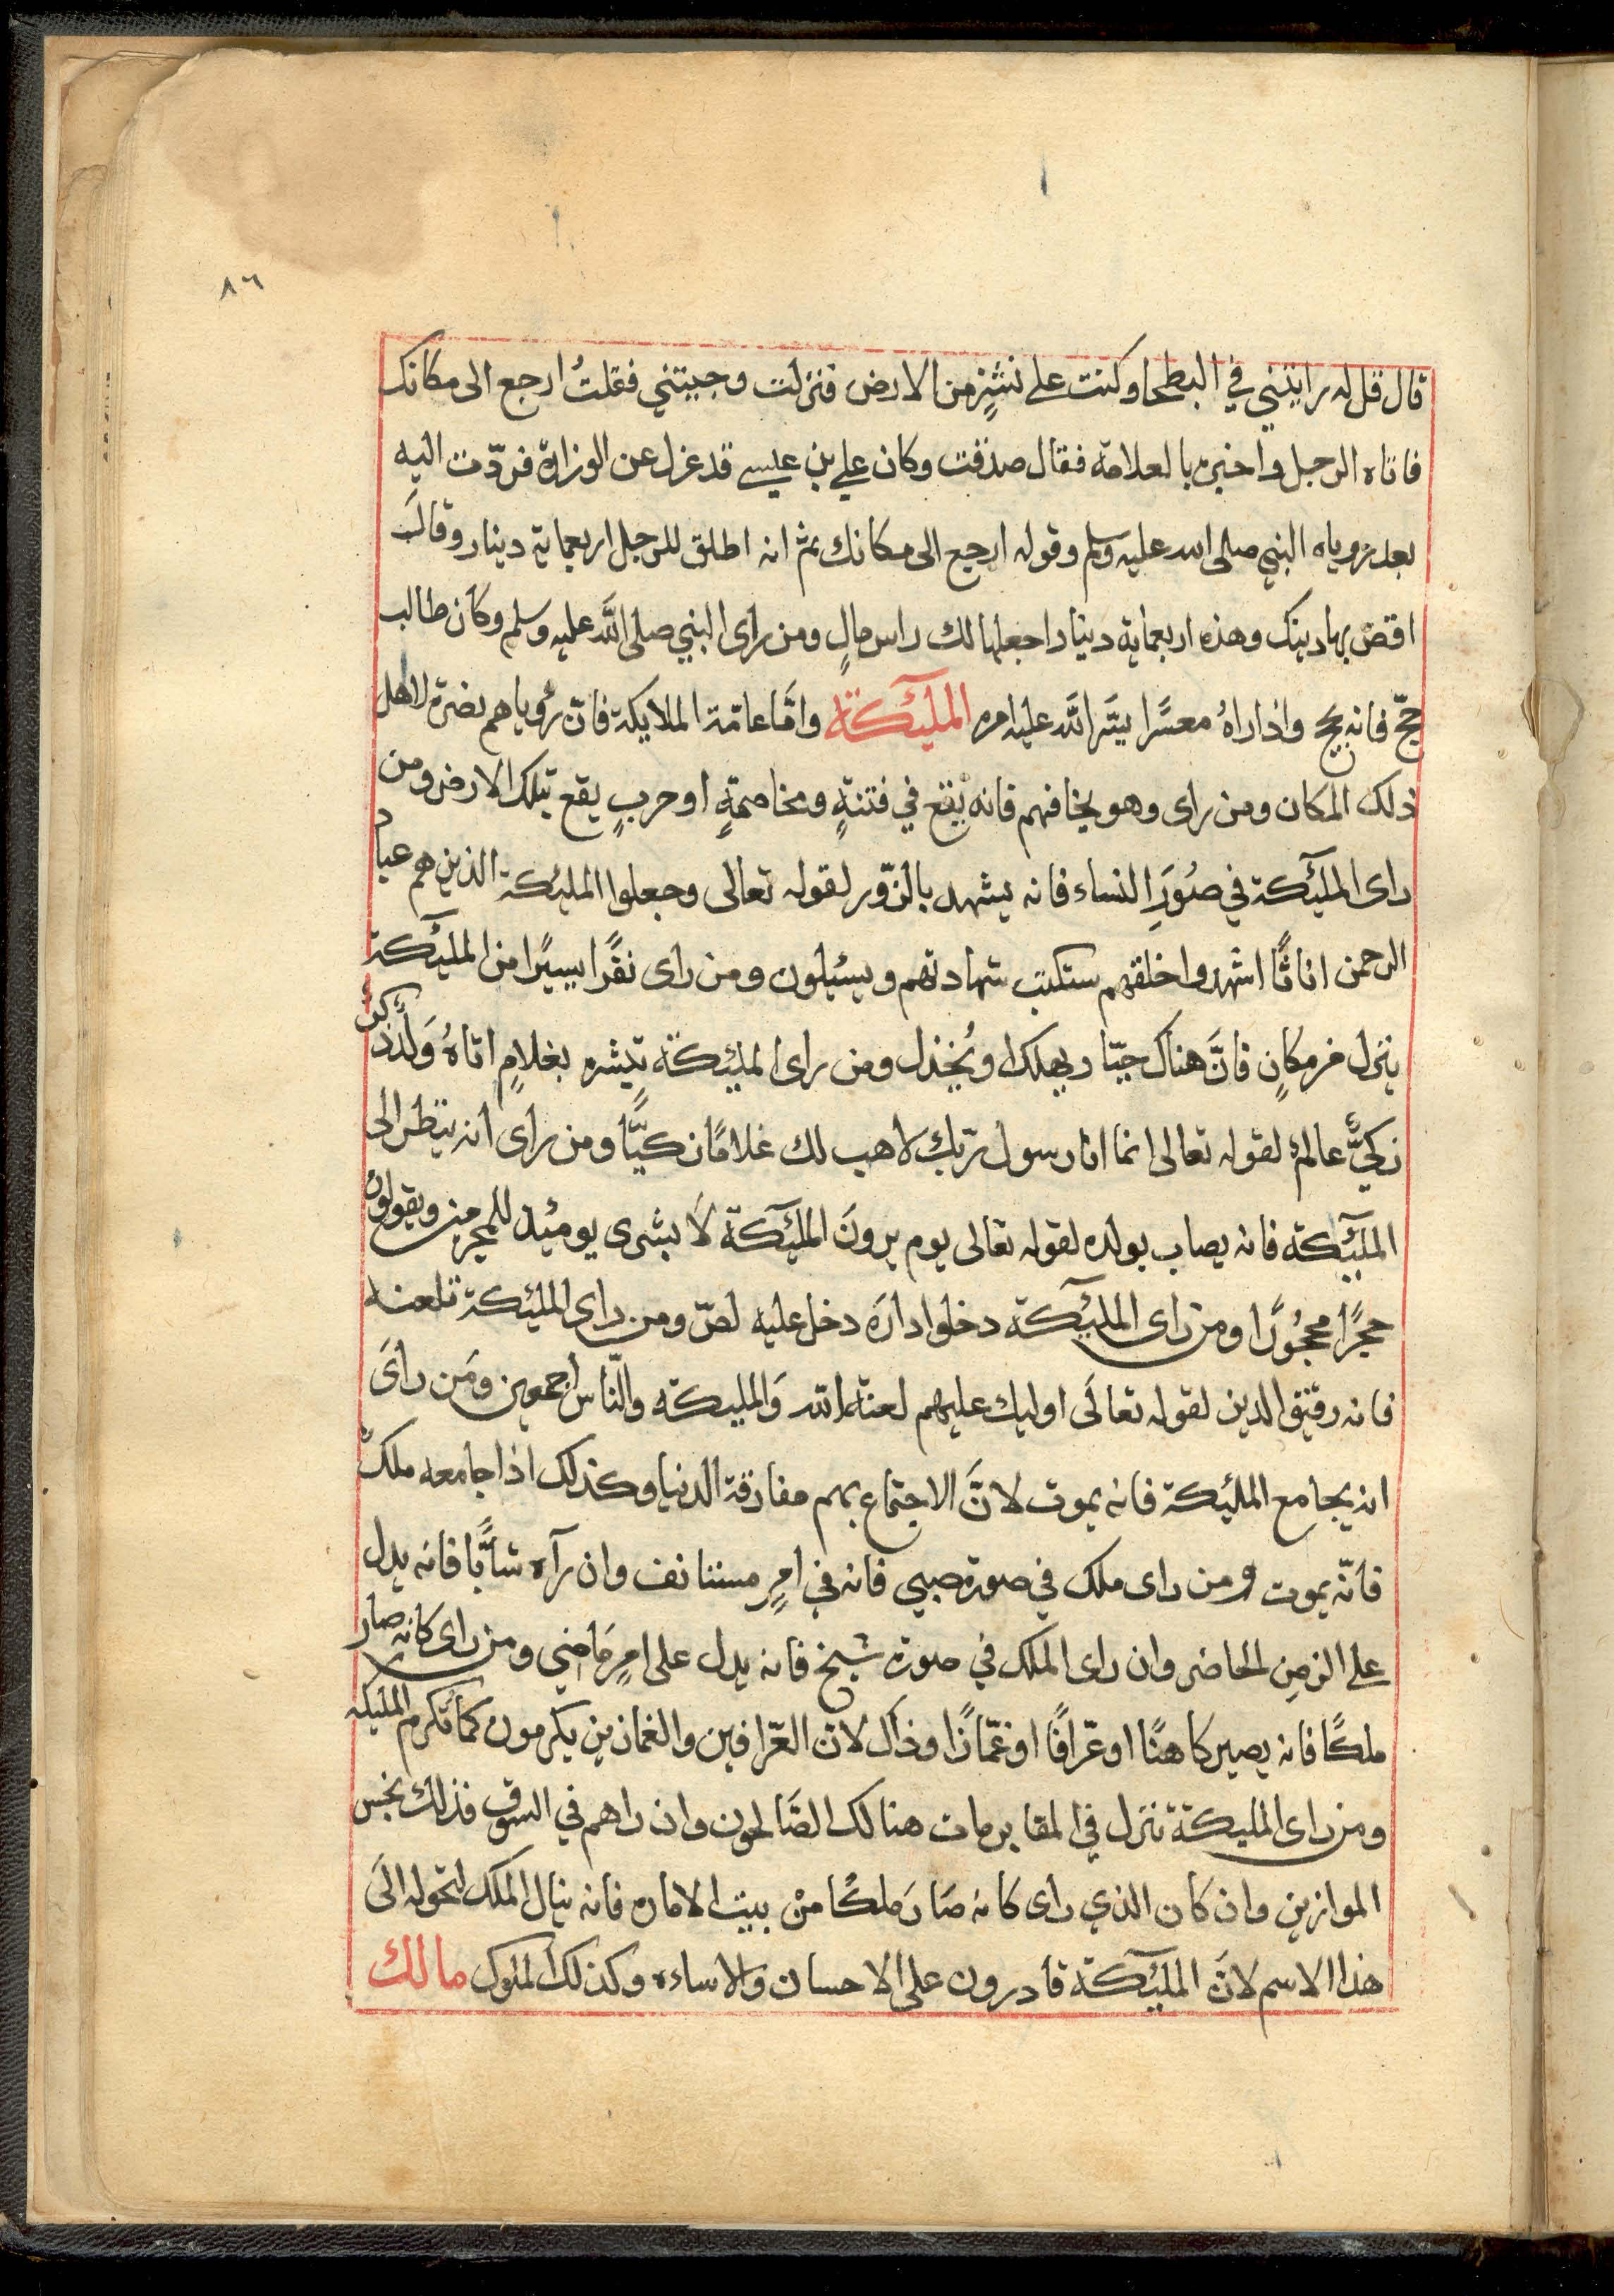 ٨٦
قال قل له رايتني في البطحا وكنت على نشزٍ من الارض فنزلت وجيتني فقلتُ ارجع الى مكانك
فاتاه الرجل واخبره بالعلامة فقال صدقت وكان علي بن عيسى قد عزل عن الوزارة فردّت اليه
بعد روياه النبي صلى الله عليه وسلم وقوله ارجع الى مكانك ثم انه اطلق للرجل اربعماية دينار وقالَ
اقض بها دينك وهذه اربعماية دينار اجعلها لك راس مالٍ ومن راى النبي صلى الله عليه وسلم وكان طالب
حجّ فانه يحج واذا راهُ معسرًا يسَّر الله عليه امره الملٓئكة وامَّا عامّة الملايكة فانّ رؤياهم نضرة لاهل
ذلك المكان ومن راى وهو يخافهم فانه يقع في فتنةٍ ومخاصمةٍ او حربٍ يقع بتلك الارض ومن
راى الملٓئكة في صُوَرِ النساء فانه يشهد بالزّور لقوله تعالى وجعلوا المليكة الذين هم عباد
الرحمن اناثًا اشهدوا خلقهم ستكتب شهادتهم ويسئلون ومن راى نفرًا يسيرًا من الملٓئكة
ينزل في مكانٍ فانَّ هناك جبّار يهلك او يُخذل ومن راى المليكة تبشره بغلامٍ اتاهُ وَلدٌ ذكرٌ
زكيٌّ عالمٌ لقوله تعالى انما انا رسول ربك لاهب لك غلامًا زكيًّا ومن راى انه ينظر الى
الملٓئكة فانه يصاب بولده لقوله تعالى يوم يرونَ الملٓئكة لا بشرى يومئذ للمجرمين ويقولونَ
حجرًا محجُورًا ومن راى الملٓئكة دخلوا دارَه دخل عليه لصّ ومن راى المليكة تلعنه
فانه رقيق الدين لقوله تعالَى اوليك عليهم لعنة الله وَالمليكة والنّاس اجمعين ومَن راىَ
انه يجامع المليكة فانه يموت لانَّ الاجتماع بهم مفارقة الدنيا وكذلك اذا جامعه ملكٌ
فانّه يموت ومن راى ملك في صورة صبي فانه في امرٍ مستانف وان رآه شابًّا فانه يدل
على الزمن الحاضر وان راى الملك في صورة شيخ فانه يدل على امرٍ مَاضي ومن راى كانه صار
ملكًا فانه يصير كاهنًا او عرّافًا او غمّازًا وذاك لان العرّافين والغمازين يكرمون كما تكرم المليكه
ومن راى المليكة تنزل في المقابر مات هنالك الصَّالحون وان راهم في السوق فذلك بخس
الموازين وان كان الذي راى كانه صَارَ ملكًا منْ بيت الاماره فانه ينال الملك لتحوله الَى
هذا الاسم لانَّ الملٓئكة قادرون على الاحسان والاساءه وكذلك الملوك مالك